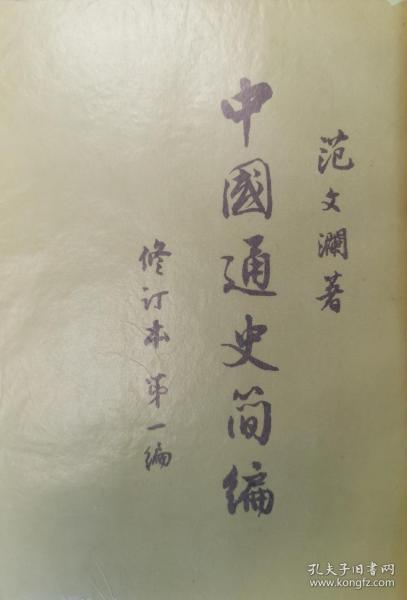 范文瀾著
中國通史简編
修订本第一编
孔夫子旧书网
www.kongfz.com